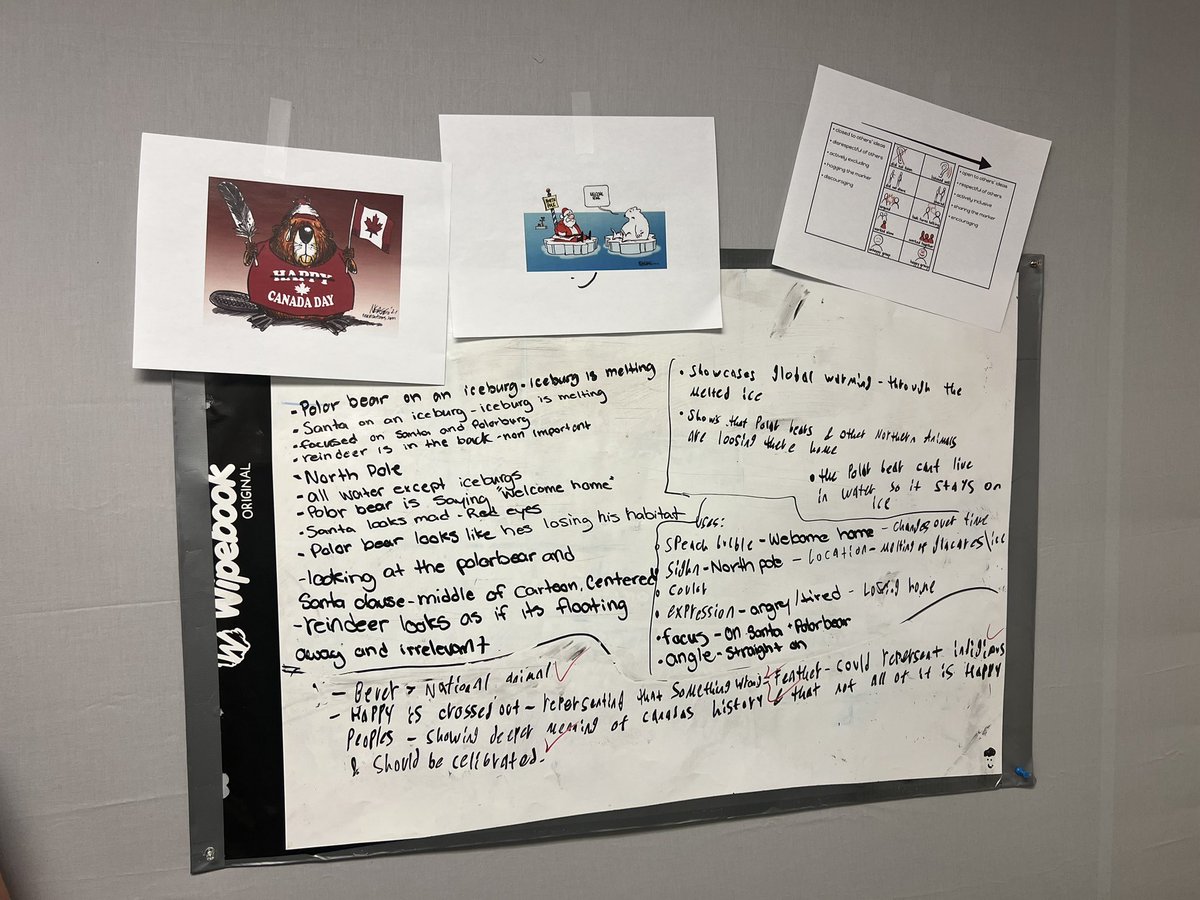 HAPPY
CANADA DAY
NORTH POLE
WELCOME HOME
• closed to others' ideas
• disrespectful of others
• actively excluding
• hogging the marker
• discouraging
• open to others' ideas
• respectful of others
• actively inclusive
• sharing the marker
• encouraging
wipebook
ORIGINAL
• Polor bear on an iceburg - iceburg is melting
• Santa on an iceburg - iceburg is melting
• focused on Santa and Polorburg
• reindeer is in the back - non important
• North Pole
- all water except iceburgs
- Polor bear is saying "Welcome home"
- Santa looks mad - Red eyes
• Polar bear looks like hes losing his habitat
- looking at the polorbear and
Santa clause - middle of cartoon, centered
- reindeer looks as if its floating
away and irrelevant.
• Showcases global warming - through the
melted ice
• Shows that Polar bears & other Northern Animals
are loosing there home
• the Polar bear cant live
in water so it stays on
ice
uses:
• Speach bubble - Welcome home - changes over time
• Sign - North pole - Location - melting of
• expression - angry/tired - Losing home
• focus - on Santa + Polorbear
• angle - Straight on
- Bever > National animal
- Happy is crossed out - repersenting that something wrong - Feather - could repersent indigious
Peoples - showing deeper meaning of canadas history & that not all of it is Happy
& should be celibrated.